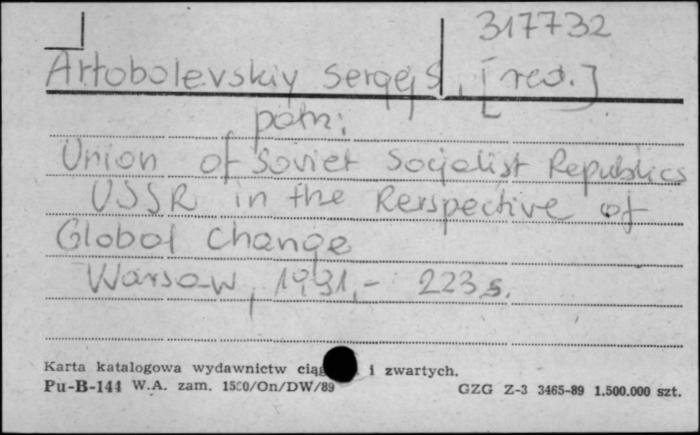 317732
Artobolevskiy Sergej S., [red.]
patrz:
Union of Soviet Socjalist Republics
USSR in the Perspective of
Global Change
Warsaw, 1991,- 223 s.
Karta katalogowa wydawnictw i zwartych.
Pu-B-144 W.A. zam. 1580/On/DW/89 GZG Z-3 3465-89 1.500.000 szt.